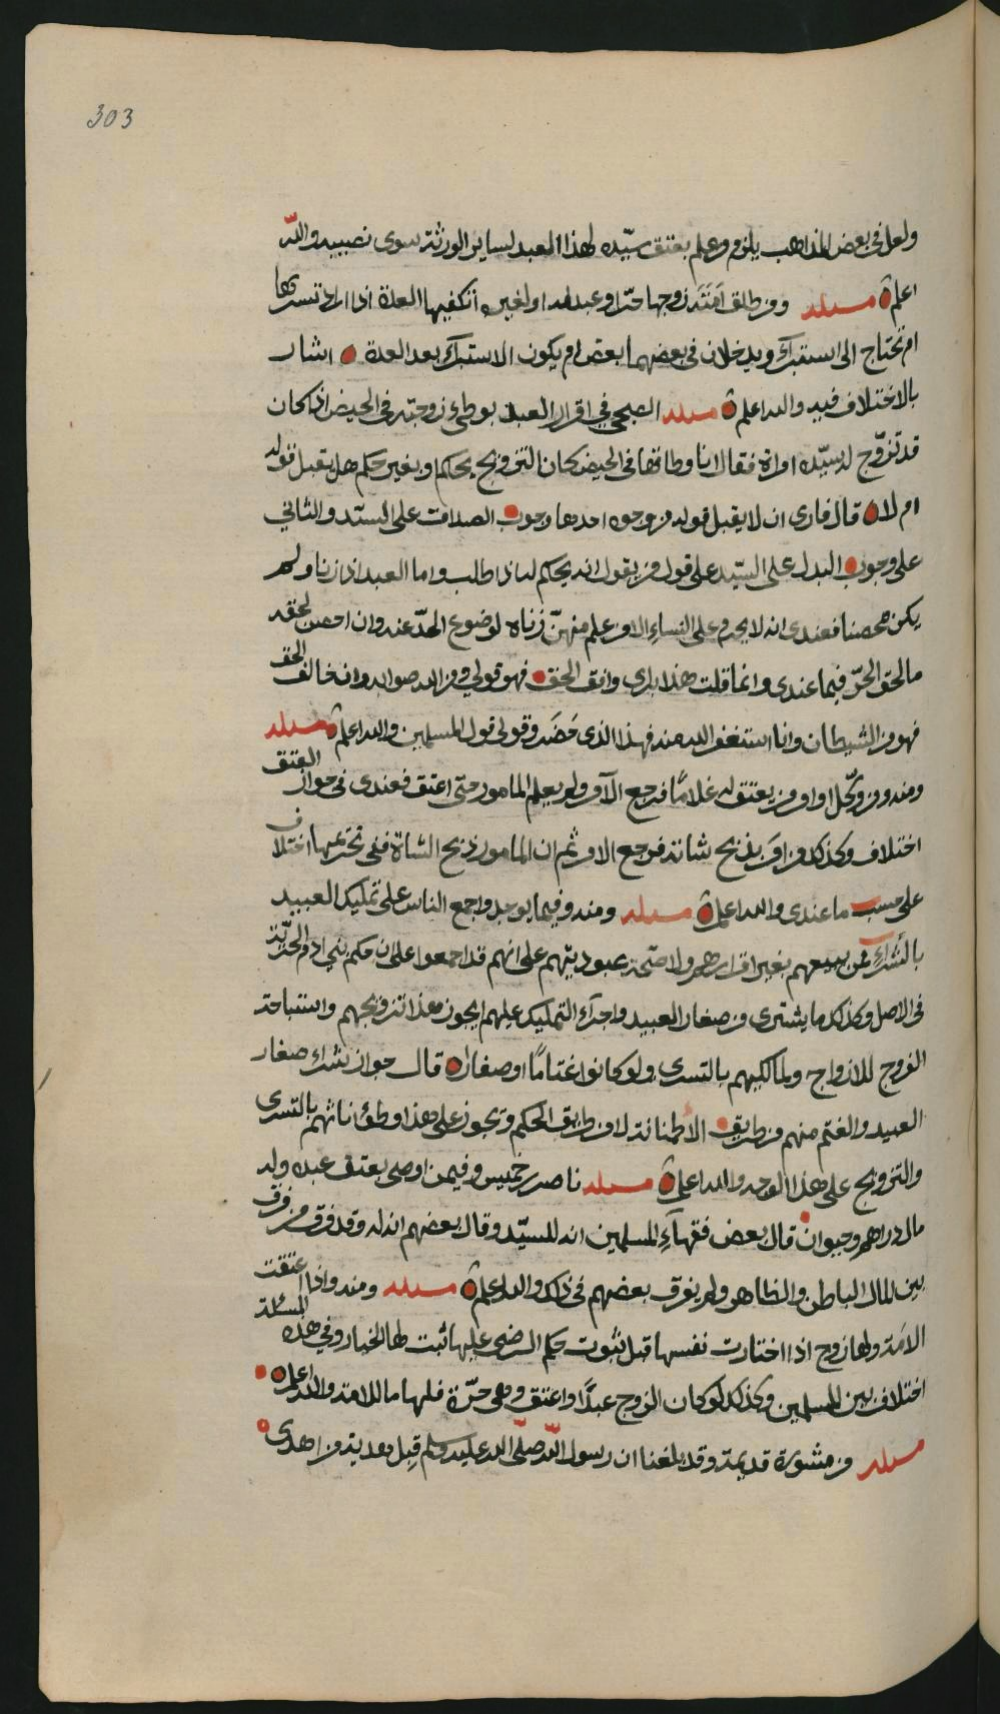 303
ولعل في بعض المذاهب يلزم من علم بعتق سيّده لهذا العبد لساير الورثة سوى نصيبه والله
اعلم مسئله ومن طلق امَتَه زوجها حرّا وعبد له او لغيره اتكفيها العدة اذا اراد تسريها
ام تحتاج الى استبراء ويدخلان في بعضهما بعض ام يكون الاستبراء بعد العدة اشار
بالاختلاف فيه والله اعلم مسئله الصبحي في اقرار العبد بوطئ زوجته في الحيض اذا كان
قد تزوّج له سيّده امراة فقال انا وطاتها في الحيض كان التزويج بحكم او بغير حكم هل يقبل قوله
ام لا قال فارى ان لا يقبل قوله من وجوه احدها وجوب الصداق على السيّد والثاني
على وجوب البدل على السيّد على قول من يقول انه يحكم له اذا طلب واما العبد اذا زنا ولم
يكن محصنا فعندي انه لا يحرم على النساء الا من علم منهنّ زناه لوضوع الحدّ عنه وان احصن لحقه
ما لحق الحرّ فيما عندي وانما قلت هذا براي وافق الحق فهو قولي ومن الله صوابه وان خالف الحق
فهو من الشيطان وانا استغفر الله منه فهذا الذي حَضَر وقولي قول المسلمين والله اعلم مسئله
ومنه ومن وكّل او امر من يعتق له غلامًا فرجع الآمر ولم يعلم المامور حتى اعتق فعندي في جواز العتق
اختلاف وكذلك من امر بذبح شاته فرجع الامر ثم ان المامور ذبح الشاة ففي تحريمها اختلاف
على حسب ما عندي والله اعلم مسئله ومنه وفيما يوجد واجمع الناس على تمليك العبيد
بالشراء عن بيعهم بغير اقرارهم ولا صحّة عبوديتهم على انهم قد اجمعوا على ان حكم بني ادم الحريّة
في الاصل وكذلك ما يشترى من صغار العبيد واجراء التمليك عليهم ايجوز معنا تزويجهم واستباحة
الفروج للازواج ولمالكيهم بالتسرى ولو كانوا غتامًا او صغارا قال جواز شراء صغار
العبيد والغتم منهم من طريق الأطمنانة لا من طريق الحكم ويجوز على هذا وطؤ اناثهم بالتسرى
والتزويج على هذا الوجه والله اعلم مسئله ناصر بن خميس وفيمن اوصى بعتق عبده وله
مال دراهم وحيوان قال بعض فقهاء المسلمين انه للسيّد وقال بعضهم انه له وقد فرق من فرق
بين المال الباطن والظاهر ولم يفرق بعضهم في ذلك والله اعلم مسئله ومنه واذا عتقت
الامة ولها زوج اذا اختارت نفسها قبل ثبوت حكم الرضى عليها ثبت لها الخيار وفي هذه المسئلة
اختلاف بين المسلمين وكذلك لو كان الزوج عبدًا واعتق وهي حرّة فلها ما للامة والله اعلم
مسئله من مشورة قديمة وقد بلغنا ان رسول الله صلّى الله عليه وسلم قبل هدية من اهدى